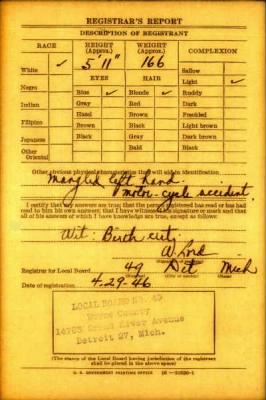 REGISTRAR'S REPORT
DESCRIPTION OF REGISTRANT
RACE HEIGHT (Approx.) WEIGHT (Approx.) COMPLEXION
5' 11" 166
White ✓ Sallow
EYES HAIR Light ✓
Negro Blue ✓ Blonde ✓ Ruddy
Indian Gray Red Dark
Hazel Brown Freckled
Filipino Brown Black Light brown
Japanese Black Gray Dark brown
Other Oriental Bald Black
Other obvious physical characteristics that will aid in identification
Mangled left hand
motor-cycle accident
I certify that my answers are true; that the person registered has read or has had
read to him his own answers; that I have witnessed his signature or mark and that
all of his answers of which I have knowledge are true, except as follows:
Wit: Birth cert;
A. Lord
Registrar for Local Board 49 Det Mich
Date of registration 4-29-46
LOCAL BOARD NO. 49
Wayne County
Grand River Avenue
Detroit 27, Mich.
(The stamp of the Local Board having jurisdiction of the registrant
shall be placed in the above space.)
U. S. GOVERNMENT PRINTING OFFICE